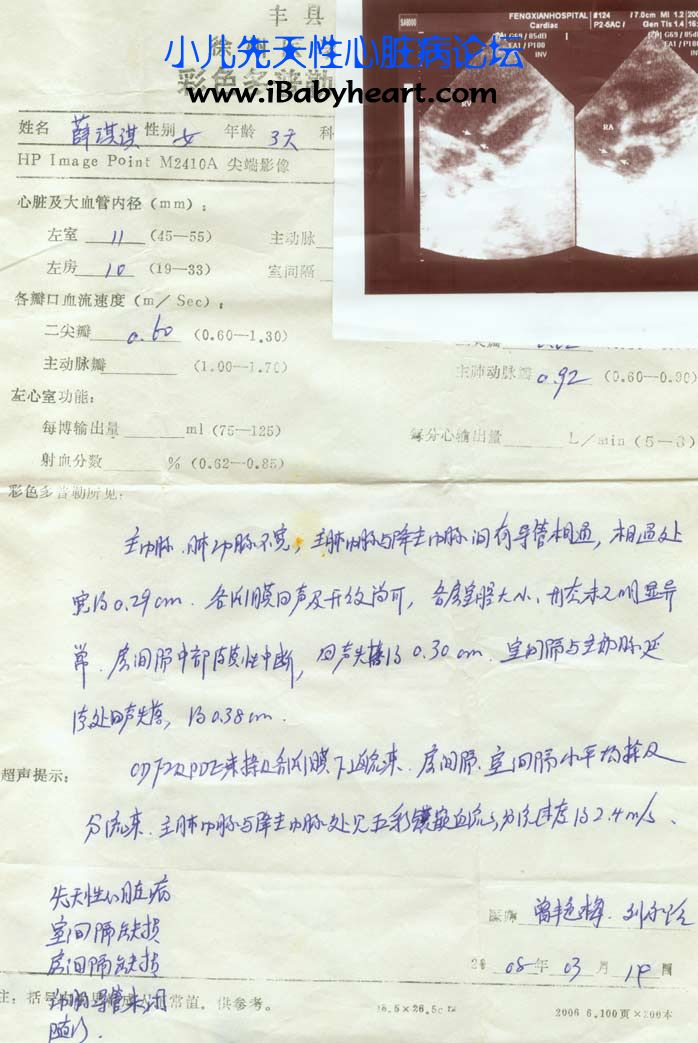 丰县
小儿先天性心脏病论坛
彩色多普勒
www.iBabyheart.com
FENGXIANHOSPITAL #124 17.0cm MI 1.2
Cardiac P2-5AC / Gen TIs 1.4
G69 / 85dB
EA1 / P100
INV
RV
RA
姓名 薛淇淇 性别 女 年龄 3天 科
HP Image Point M2410A 尖端影像
心脏及大血管内径（mm）：
左室 11 （45—55） 主动脉
左房 10 （19—33） 室间隔
各瓣口血流速度（m／Sec）：
二尖瓣 0.60 （0.60—1.30）
主动脉瓣 （1.00—1.70） 主肺动脉瓣 0.92 （0.60—0.90）
左心室功能：
每博输出量 ml（75—125） 每分心输出量 L／min（5—8）
射血分数 %（0.62—0.85）
彩色多普勒所见：
主动脉、肺动脉不宽，主肺动脉与降主动脉间有导管相通，相通处
宽约0.29cm．各瓣膜回声及开放尚可，各房室腔大小、形态未见明显异
常．房间隔中部连续性中断，回声失落约0.30cm．室间隔与主动脉延
续处回声失落，约0.38cm．
超声提示：
CDFI及PDE未探及各瓣膜下返流束．房间隔、室间隔水平均探及
分流束．主肺动脉与降主动脉处见五彩镶嵌血流，分流速度约2.4m/s．
先天性心脏病
室间隔缺损
房间隔缺损
动脉导管未闭
随诊．
医师
2008年03月19日
注：括号内 正常值，供参考。 2006 6.100页×200本